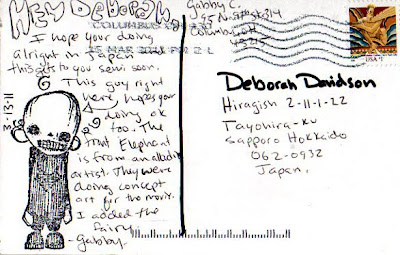 HEY DEBORAH
I hope your doing
alright in Japan
this gets to you semi soon.
This guy right
here hopes your
doing ok
too. The
front Elephant
is from an
artist. They were
doing concept
art for the movie.
I added the
fairy.
-Gabby
3-13-11
Gabby C.
COLUMBUS
PR 2 L
USA
Deborah Davidson
Hiragish 2-11-1-22
Toyohira-ku
Sapporo Hokkaido
062-0932
Japan.